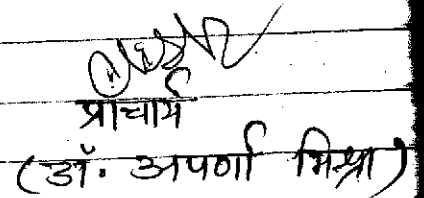 प्राचार्य
(डॉ. अपर्णा मिश्रा)